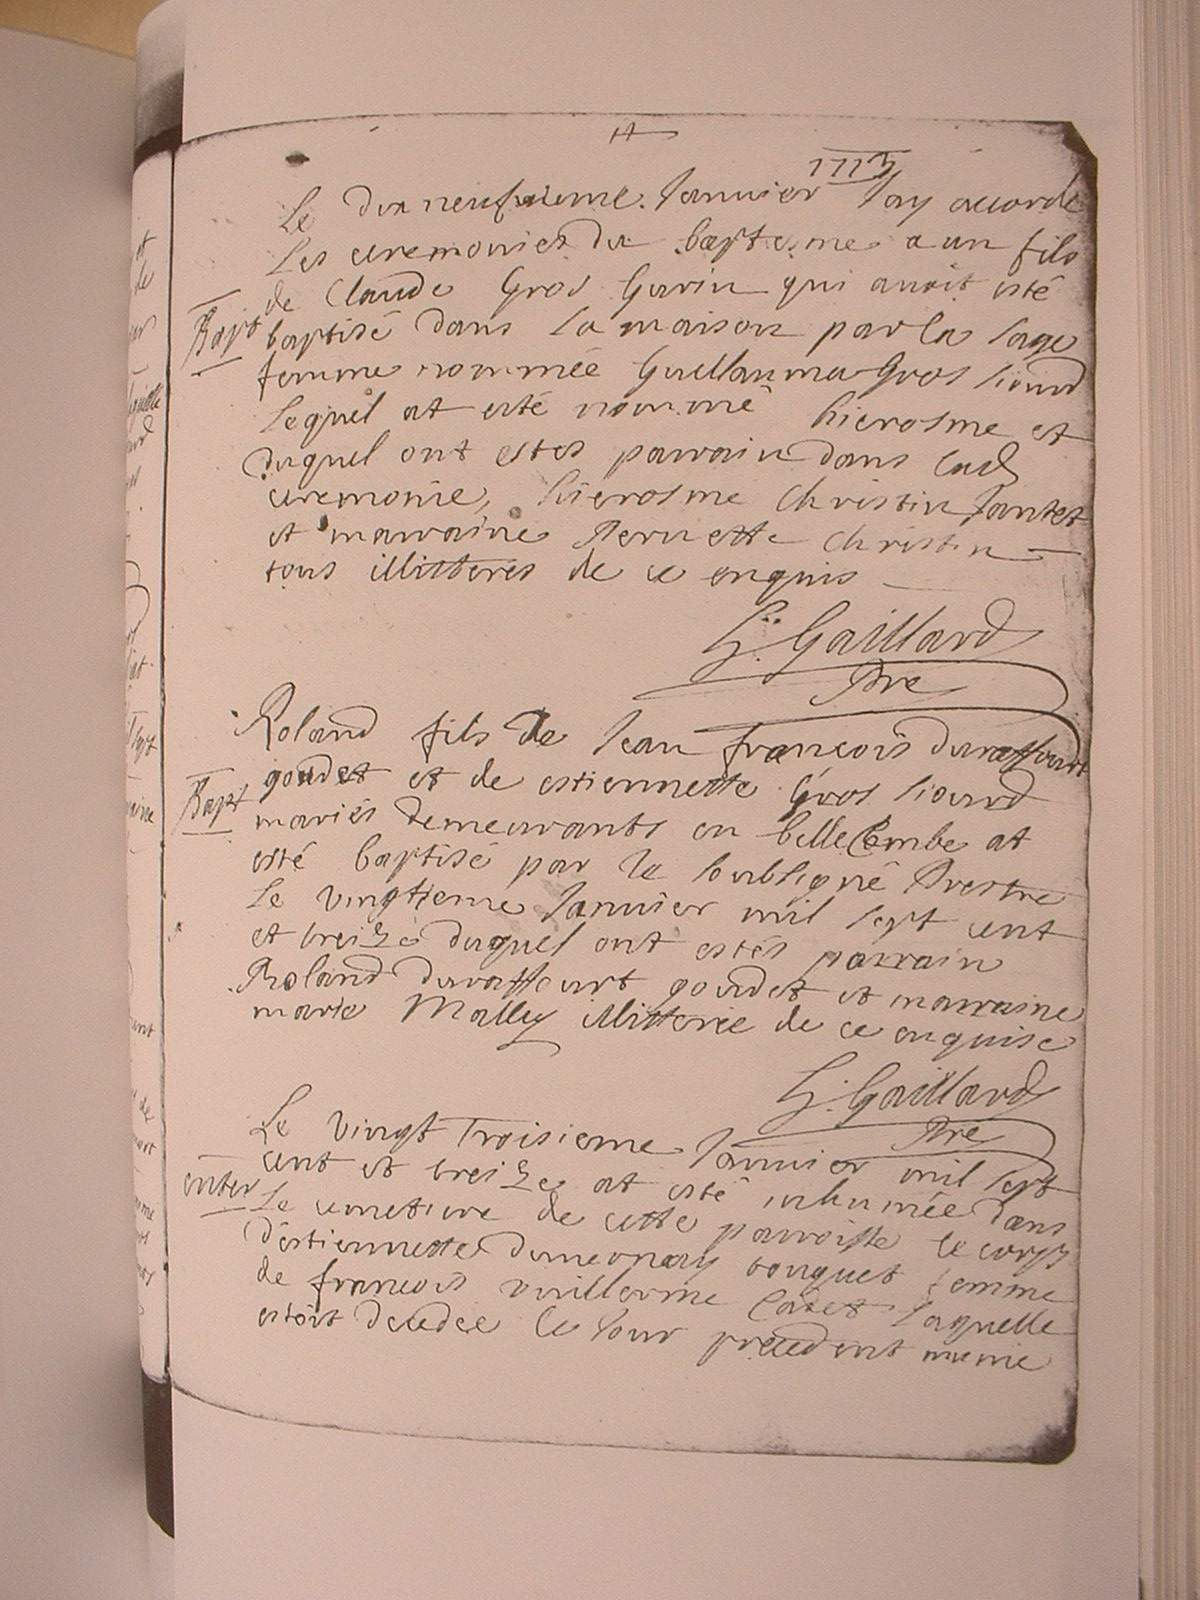 1713
Le dix neufvieme Janvier Jay accordé
Les ceremonies du baptesme a un fils
de Claude Gros Gurin qui avoit esté
Bapt baptisé dans la maison par la sage
femme nommée Guillauma Gros liourd
Lequel at esté nommé hierosme et
duquel ont estes parrain dans lad
ceremonie, hierosme Christin Jantet
et marraine Pernette Christin
tous illitteres de ce enquis
G. Gaillard
Pre
Roland fils de Jean françois duraffourt
goudet et de estiennette Gros liourd
Bapt mariés demeurants en bellecombe at
esté baptisé par le soubsigné Prestre
Le vingtieme Janvier mil sept cent
et treize duquel ont estés parrain
Roland duraffourt goudet et marraine
marie Mally illitterée de ce enquise
G. Gaillard
Pre
Le vingt troisieme Janvier mil sept
cent et treize at esté inhumée dans
enter Le cemetiere de cette parroisse le corps
d'estiennette femme
de françois vuillerme Cadet laquelle
estoit decedee le Jour precedent munie